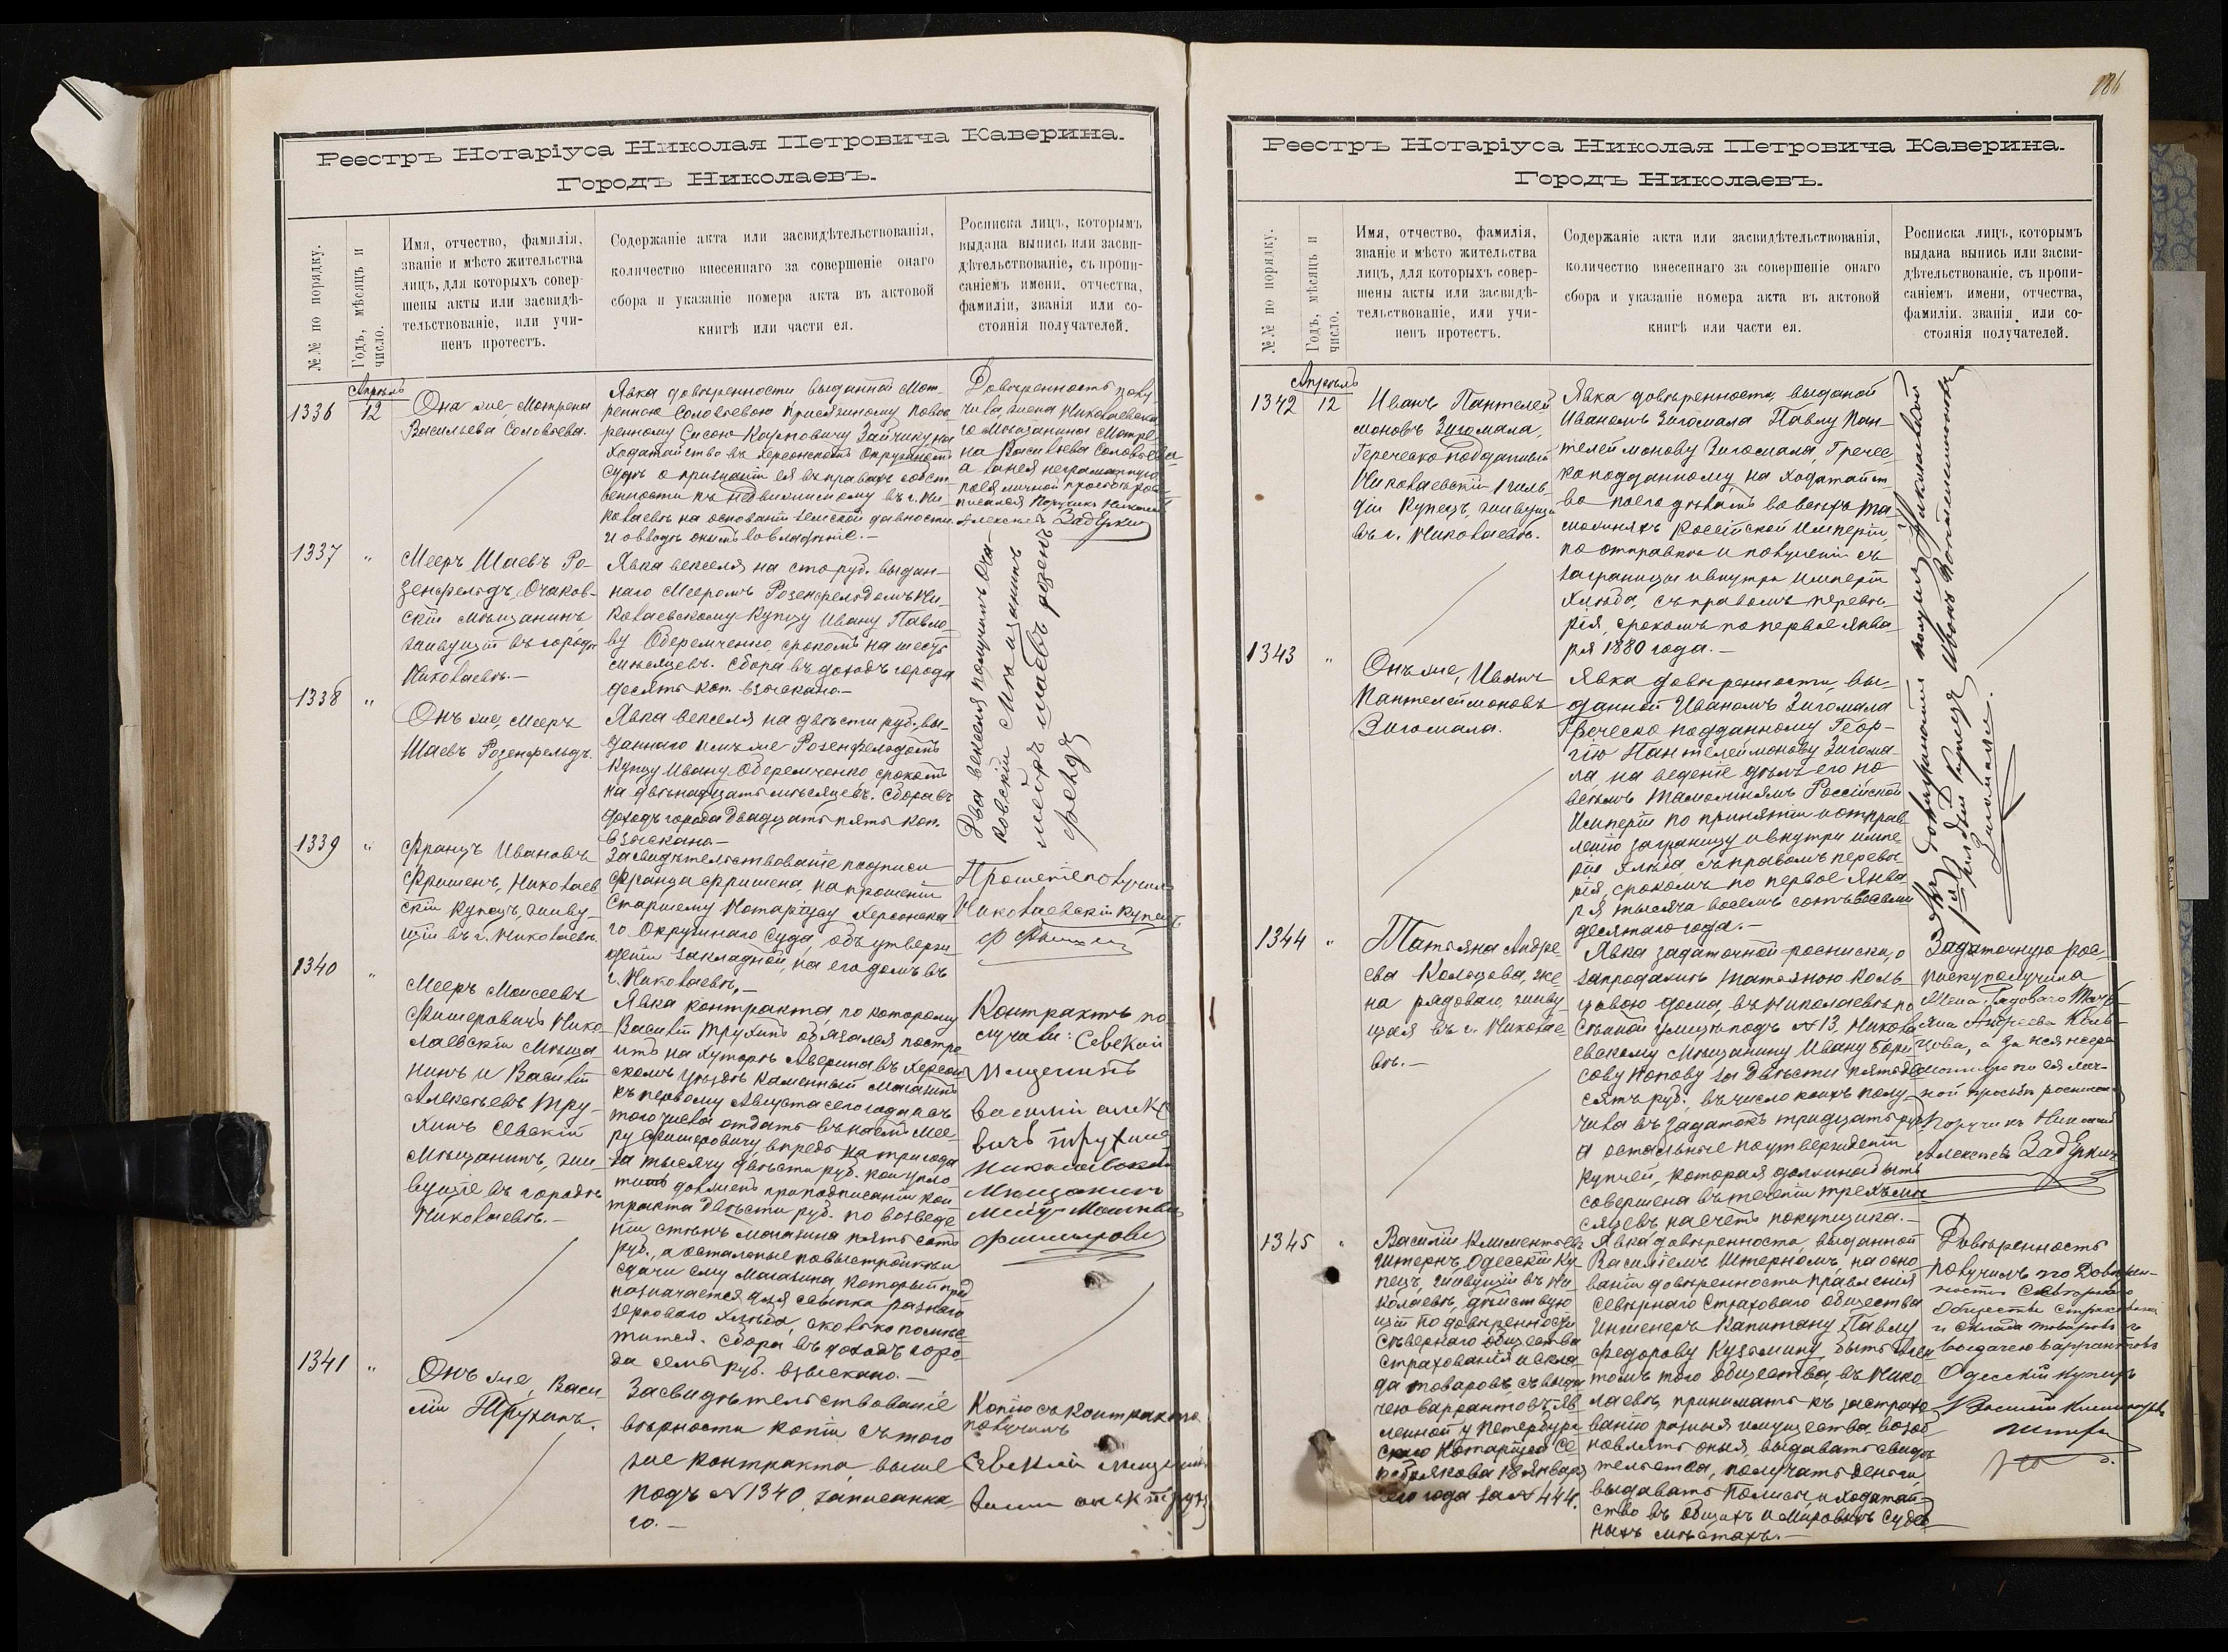 Реестръ Нотаріуса Николая Петровича Каверина.
Городъ Николаевъ.
№№ по порядку.
Годъ, мѣсяцъ и
число.
Имя, отчество, фамилія,
званіе и мѣсто жительства
лицъ, для которыхъ совер-
шены акты или засвидѣ-
тельствованіе, или учи-
ненъ протестъ.
Содержаніе акта или засвидѣтельствованія,
количество внесеннаго за совершеніе онаго
сбора и указаніе номера акта въ актовой
книгѣ или части ея.
Росписка лицъ, которымъ
выдана выпись или засви-
дѣтельствованіе, съ пропи-
саніемъ имени, отчества,
фамиліи, званія или со-
стоянія получателей.
1336
Апрѣль
12
Она же, Матрена
Васильева Соловьева.
Явка довѣренности, выданной Мот-
реною Соловьевою присяжному повѣ-
ренному Сисою Карповичу Зайчику на
ходатайство въ Херсонскомъ Окружномъ
Судѣ о признаніи ея въ правахъ собст-
венности къ недвижимому въ г. Ни-
колаевѣ на основаніи земской давности
и вводѣ онымъ во владѣніе.-
Довѣренность полу
чила, жена Николаевска
го мѣщанина Матре-
на Васильева Соловьева
а за нея неграмотную
по ея личной просьбѣ рос-
писался Поручикъ Николай
Алексѣевъ Задеркин
1337
"
Мееръ Шаевъ Ро-
зенфельдъ, Очаков-
скій мѣщанинъ
живущій въ городѣ
Николаевѣ.-
Явка векселя на сто руб. выдан-
наго Мееромъ Розенфельдомъ Ни-
колаевскому Купцу Ивану Павло-
ву Оберемченко, срокомъ на шесть
мѣсяцевъ. Сбора въ доходъ города
десять коп. взыскано.-
Два векселя получилъ Оча-
ковскій Мѣщанинъ
мееръ шаевъ розенъ
фельдъ
1338
"
Онъ же, Мееръ
Шаевъ Розенфельдъ.
Явка векселя на двѣсти руб., вы-
даннаго имъ же Розенфельдомъ
купцу Ивану Оберемченко срокомъ
на двѣнадцать мѣсяцевъ. Сбора въ
доходъ города двадцать пять коп.
взыскано.-
1339
"
Францъ Ивановъ
Фришенъ, Николаев
скій купецъ, живу-
щій въ г. Николаевѣ.
Засвидѣтельствованіе подписи
Франца Фришена на прошеніи
Старшему Нотаріусу Херсонска
го Окружнаго Суда, объ утверж
деніи закладной, на его домъ въ
г. Николаевѣ.-
Прошеніе получилъ
Николаевскій купецъ
1340
"
Мееръ Моисеевъ
Фишеровичъ Нико
лаевскій Мѣща
нинъ и Василій
Алексѣевъ Тру-
хинъ Севскій
Мѣщанинъ, жи-
вущіе въ городѣ
Николаевѣ.-
Явка контракта, по которому
Василій Трухинъ обязался постро
ить на хуторѣ Аверина въ Херсон
скомъ уѣздѣ каменный магазинъ
къ первому Августа сего года и съ
того числа отдать въ наемъ Мее-
ру Фишеровичу, впредь на три года
за тысячу двѣсти руб. кои упла-
тить долженъ при подписаніи кон
тракта двѣсти руб. по возведе
ніи стѣнъ магазина пять сотъ
руб., а остальные по выстройкѣ и
сдачи ему магазина, который пред
назначается для ссыпки разнаго
зерноваго хлѣба, сколько помѣс-
тится. Сбора въ доходъ горо-
да семь руб. взыскано.-
Контрактъ по
лучили: Севский
Мещенинъ
василій алекс
вичъ трухин
Николаевский
Мещанинъ
1341
"
Онъ же, Васи-
лій Трухинъ.
Засвидѣтельствованіе
вѣрности копіи съ того
же контракта, выше
подъ № 1340, записанна
го.-
Копію съ контракта
получилъ
Севский мещенин
186
Реестръ Нотаріуса Николая Петровича Каверина.
Городъ Николаевъ.
№№ по порядку.
Годъ, мѣсяцъ и
число.
Имя, отчество, фамилія,
званіе и мѣсто жительства
лицъ, для которыхъ совер-
шены акты или засвидѣ-
тельствованіе, или учи-
ненъ протестъ.
Содержаніе акта или засвидѣтельствованія,
количество внесеннаго за совершеніе онаго
сбора и указаніе номера акта въ актовой
книгѣ или части ея.
Росписка лицъ, которымъ
выдана выпись или засви-
дѣтельствованіе, съ пропи-
саніемъ имени, отчества,
фамиліи. званія или со-
стоянія получателей.
1342
Апрѣль
12
Иванъ Пантелей
моновъ Зигомала,
Греческоподданный
Николаевскій 1 гиль-
діи Купецъ, живущій
въ г. Николаевѣ.
Явка довѣренности, выданой
Иваномъ Зигомала Павлу Пан-
телеймонову Зигомала, Гречес-
коподданному на ходатайст
во по его дѣламъ во всѣхъ та-
можняхъ Россійской Имперіи,
по отправкѣ и полученіи съ
заграницы и внутри Имперіи
хлѣба, съ правомъ перевѣ-
рія, срокомъ по первое Янва
ря 1880 года.-
1343
"
Онъ же, Иванъ
Пантелеймоновъ
Зигомала.
Явка довѣренности, вы-
данной Иваномъ Зигомала
Греческо подданному Геор-
гію Пантелеймонову Зигома
ла, на веденіе дѣлъ его по
всѣмъ таможнямъ Россійской
Имперіи по принятіи и отправ
ленію заграницу и внутри импе
ріи хлѣба, съ правомъ перевѣ-
рія, срокомъ по первое Янва
ря тысяча восемь сотъ восемь
десятаго года.-
1344
"
Татьяна Андре
ева Кольцова, же-
на рядоваго, живу
щая въ г. Николае-
вѣ.-
Явка задаточной росписки, о
запродажѣ Татьяною Коль
цовою дома, въ Николаевѣ по
Спаской улицѣ подъ № 13, Никола
евскому мѣщанину Ивану Бори
сову Попову за двѣсти пятьде
сятъ руб., въ число коихъ полу-
чила въ задатокъ тридцать руб.
а остальные по утвержденіи
купчей, которая должна быть
совершена въ теченіи трехъ мѣ
сяцевъ на счетъ покупщика.-
Задаточную рос-
писку получила
Жена Рядоваго Тать-
яна Андреева Коль-
цова, а за нея негра
мотную по ея лич-
ной просьбѣ росписался
Поручикъ Николай
Алексѣевъ Задеркин
1345
"
Василій Климентьевъ
Штернъ, Одесскій Ку-
пецъ, живущій въ Ни-
колаевѣ, дѣйствую
щій по довѣренности
Сѣвернаго общества
страхованія и скла-
да товаровъ, съ выда
чею варрантовъ, яв
ленной у Петербург
скаго Нотаріуса Се
ребрякова 18 Января
сего года за № 444.
Явка довѣренности, выданной
Василіемъ Штерномъ, на осно
ваніи довѣренности правленія
Сѣвернаго Страховаго общества
Инженеръ Капитану Павлу
Федорову Кузьмину, быть аген
томъ того общества, въ Нико
лаевѣ, принимать къ застрахо
ванію разныя имущества, возоб
новлять оныя, выдавать свидѣ
тельства, получать деньги,
выдавать полисы, и ходатай-
ство въ общихъ и мировыхъ судеб
ныхъ мѣстахъ.-
Довѣренность
получилъ по довѣрен-
ности Сѣвернаго
Общества страхованія
и склада товаровъ съ
выдачею варрантовъ
Одесскій купецъ